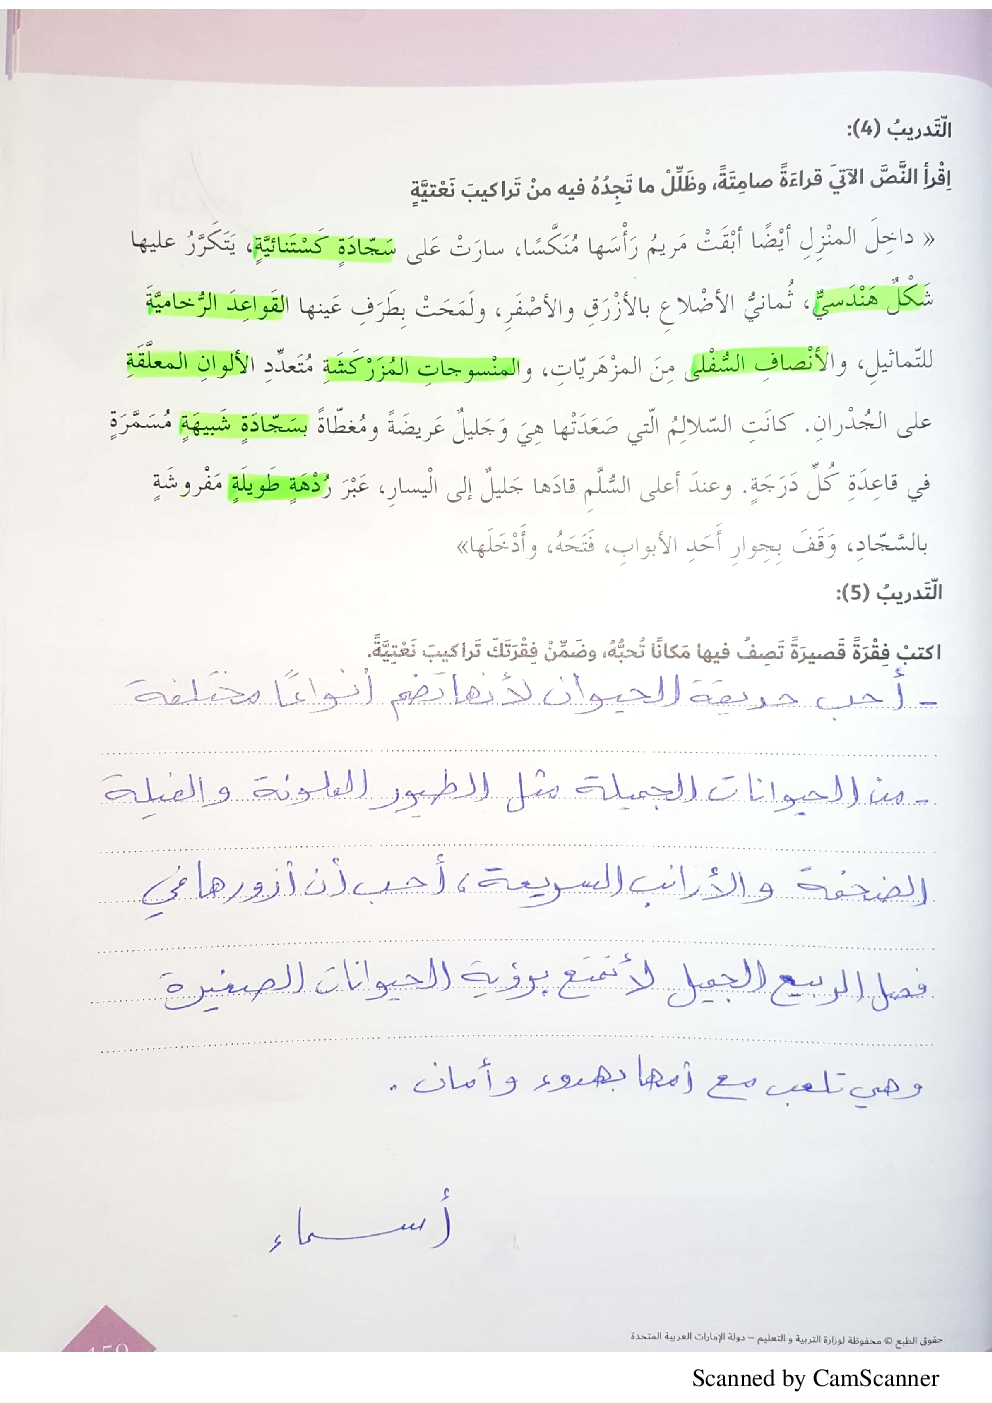 التّدريبُ (4):
اِقْرأ النَّصَّ الآتيَ قراءَةً صامِتَةً، وظَلِّلْ ما تَجِدُهُ فيه منْ تَراكيبَ نَعْتيَّةٍ
« داخِلَ المنْزِلِ أيْضًا أبْقَتْ مَريمُ رَأْسَها مُنَكَّسًا، سارَتْ عَلى سَجّادَةٍ كَسْتَنائيَّةٍ، يَتَكَرَّرُ عليها
شَكْلٌ هَنْدَسيٌّ، ثُمانيُّ الأضْلاعِ بالأزْرَقِ والأصْفَرِ، ولَمَحَتْ بِطَرَفِ عَينها القَواعِدَ الرُّخاميَّةَ
للتّماثيلِ، والأنْصافِ السُّفْلى مِنَ المزْهَريّاتِ، والمنْسوجاتِ المُزَرْكَشَةِ مُتَعدِّدِ الألْوانِ المعلَّقَةِ
على الجُدْرانِ. كانَتِ السّلالِمُ الّتي صَعَدَتْها هِيَ وَجَليلٌ عَريضَةً ومُغطّاةً بسَجّادَةٍ شَبيهَةٍ مُسَمَّرَةٍ
في قاعِدَةِ كُلِّ دَرَجَةٍ. وعندَ أعلى السُّلَّمِ قادَها جَليلٌ إلى الْيسارِ، عَبْرَ رُدْهَةٍ طَويلَةٍ مَفْروشَةٍ
بالسَّجّادِ، وَقَفَ بِجِوارِ أَحَدِ الأبوابِ، فَتَحَهُ، وأَدْخَلَها»
التّدريبُ (5):
اكتبْ فِقْرَةً قَصيرَةً تَصِفُ فيها مَكانًا تُحبُّهُ، وضَمِّنْ فِقْرَتَكَ تَراكيبَ نَعْتِيَّةً.
- أحب حديقة الحيوان لأنها تضم أنواعًا مختلفة
- من الحيوانات الجميلة مثل الطيور الملونة والفيلة
الضخمة والأرانب السريعة، أحب أن أزورها في
فصل الربيع الجميل لأتمتع برؤية الحيوانات الصغيرة
وهي تلعب مع أمها بهدوء وأمان .
أسماء
حقوق الطبع © محفوظة لوزارة التربية و التعليم – دولة الإمارات العربية المتحدة
Scanned by CamScanner